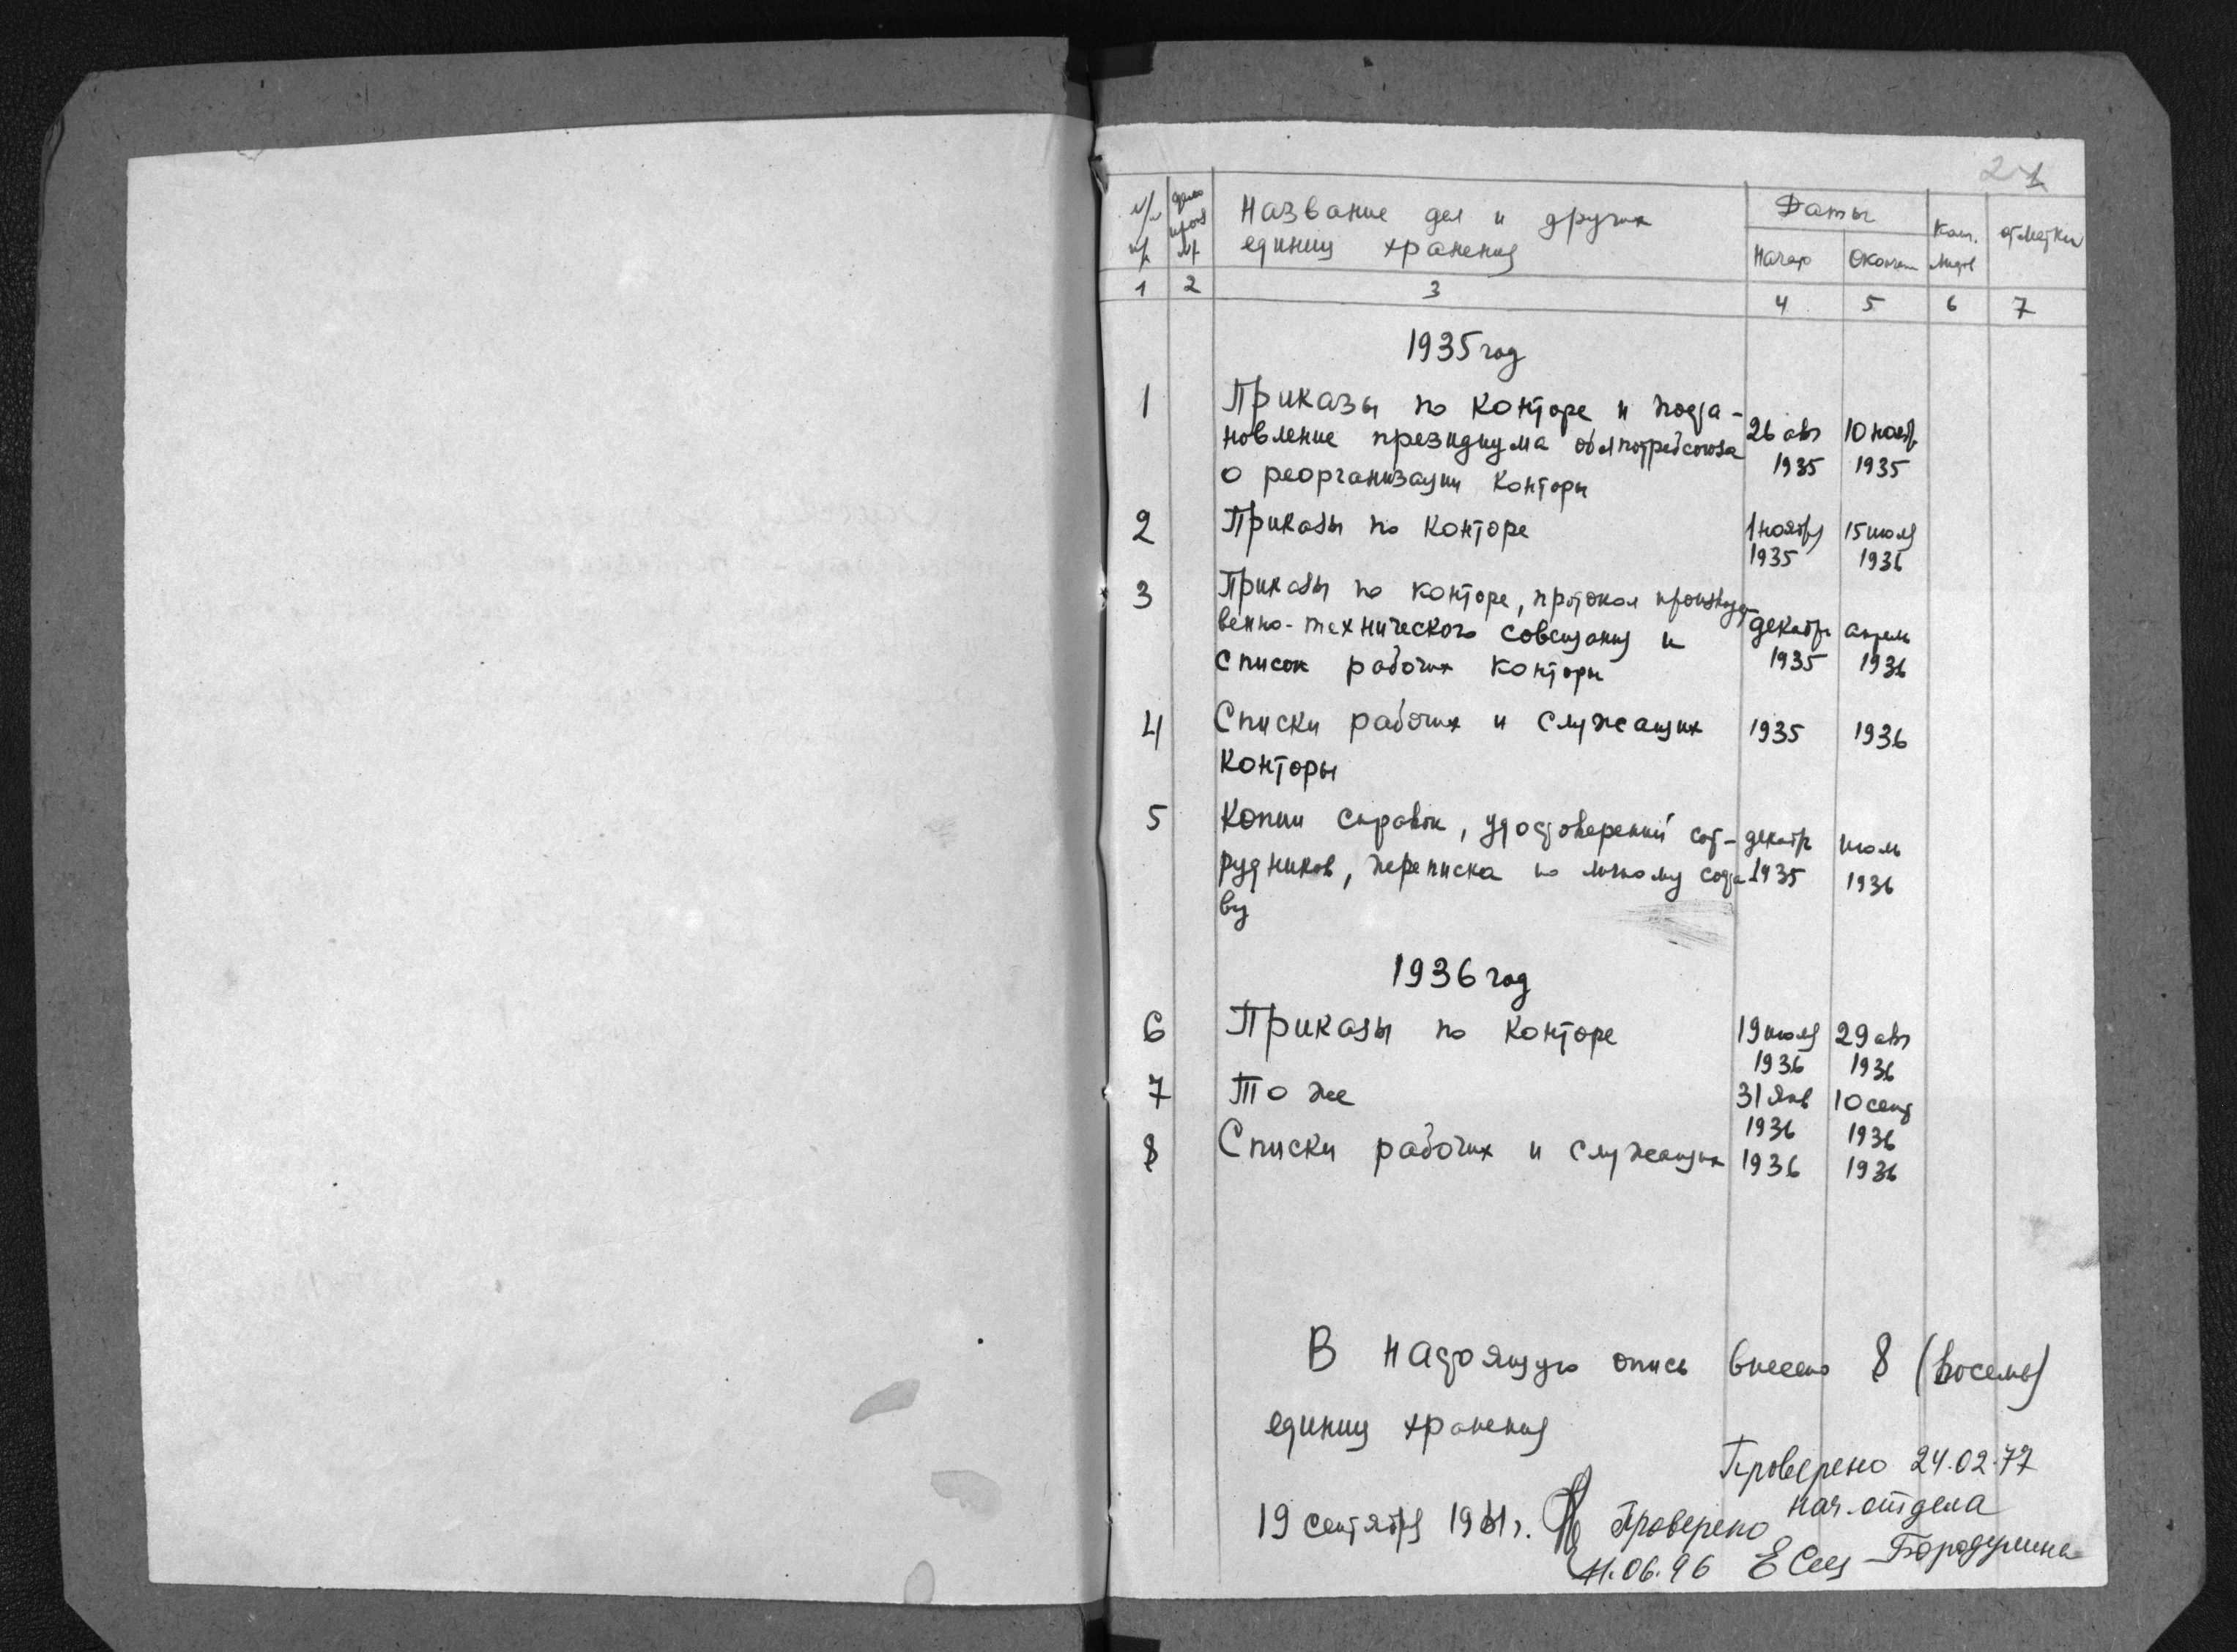 2
№№ дело Название дел и других Даты Кол. отметки
п/п произ № единиц хранения Начал Окончан листов
1 2 3 4 5 6 7
1935 год
1 Приказы по конторе и поста-
новление президиума облпотребсоюза 26 авг 10 нояб
о реорганизации конторы 1935 1935
2 Приказы по конторе 1 ноября 15 июля
1935 1936
3 Приказы по конторе, протокол производст
венно-технического совещания и декабрь апрель
список рабочих конторы 1935 1936
4 Списки рабочих и служащих 1935 1936
конторы
5 Копии справок, удостоверений сот- декабрь июль
рудников, переписка по личному соста 1935 1936
ву
1936 год
6 Приказы по конторе 19 июля 29 авг
1936 1936
7 То же 31 янв 10 сент
1936 1936
8 Списки рабочих и служащих 1936 1936
В настоящую опись внесено 8 (восемь)
единиц хранения
Проверено 24.02.77
нач. отдела
19 сентября 1961 г. Проверено Бородулина
11.06.96